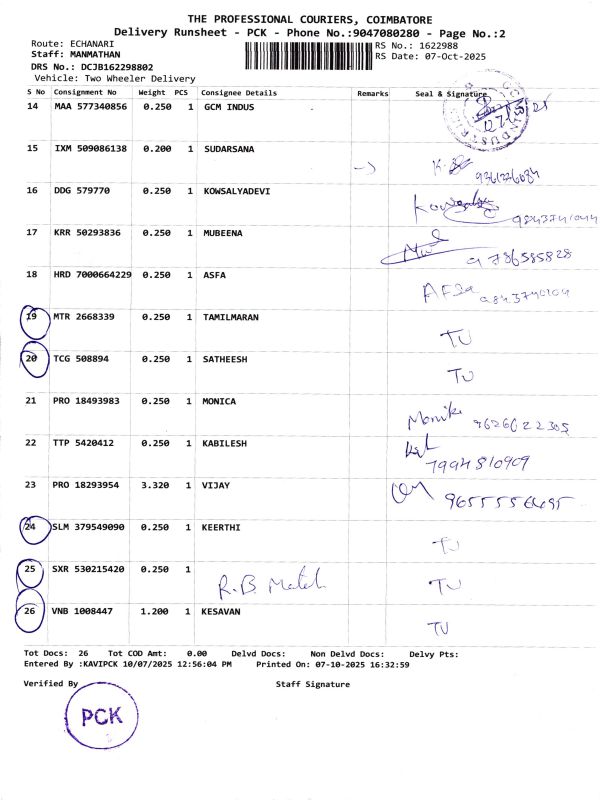 THE PROFESSIONAL COURIERS, COIMBATORE
Delivery Runsheet - PCK - Phone No.:9047080280 - Page No.:2
Route: ECHANARI
RS No.: 1622988
Staff: MANMATHAN
RS Date: 07-Oct-2025
DRS No.: DCJB162298802
Vehicle: Two Wheeler Delivery
S No Consignment No Weight PCS Consignee Details Remarks Seal & Signature
14 MAA 577340856 0.250 1 GCM INDUS
15 IXM 509086138 0.200 1 SUDARSANA
16 DDG 579770 0.250 1 KOWSALYADEVI
17 KRR 50293836 0.250 1 MUBEENA 9786585828
18 HRD 7000664229 0.250 1 ASFA
19 MTR 2668339 0.250 1 TAMILMARAN TU
20 TCG 508894 0.250 1 SATHEESH TU
21 PRO 18493983 0.250 1 MONICA 9626022305
22 TTP 5420412 0.250 1 KABILESH
7994810909
23 PRO 18293954 3.320 1 VIJAY
24 SLM 379549090 0.250 1 KEERTHI TU
25 SXR 530215420 0.250 1 R.B. TU
26 VNB 1008447 1.200 1 KESAVAN TU
Tot Docs: 26 Tot COD Amt: 0.00 Delvd Docs: Non Delvd Docs: Delvy Pts:
Entered By :KAVIPCK 10/07/2025 12:56:04 PM Printed On: 07-10-2025 16:32:59
Verified By Staff Signature
PCK